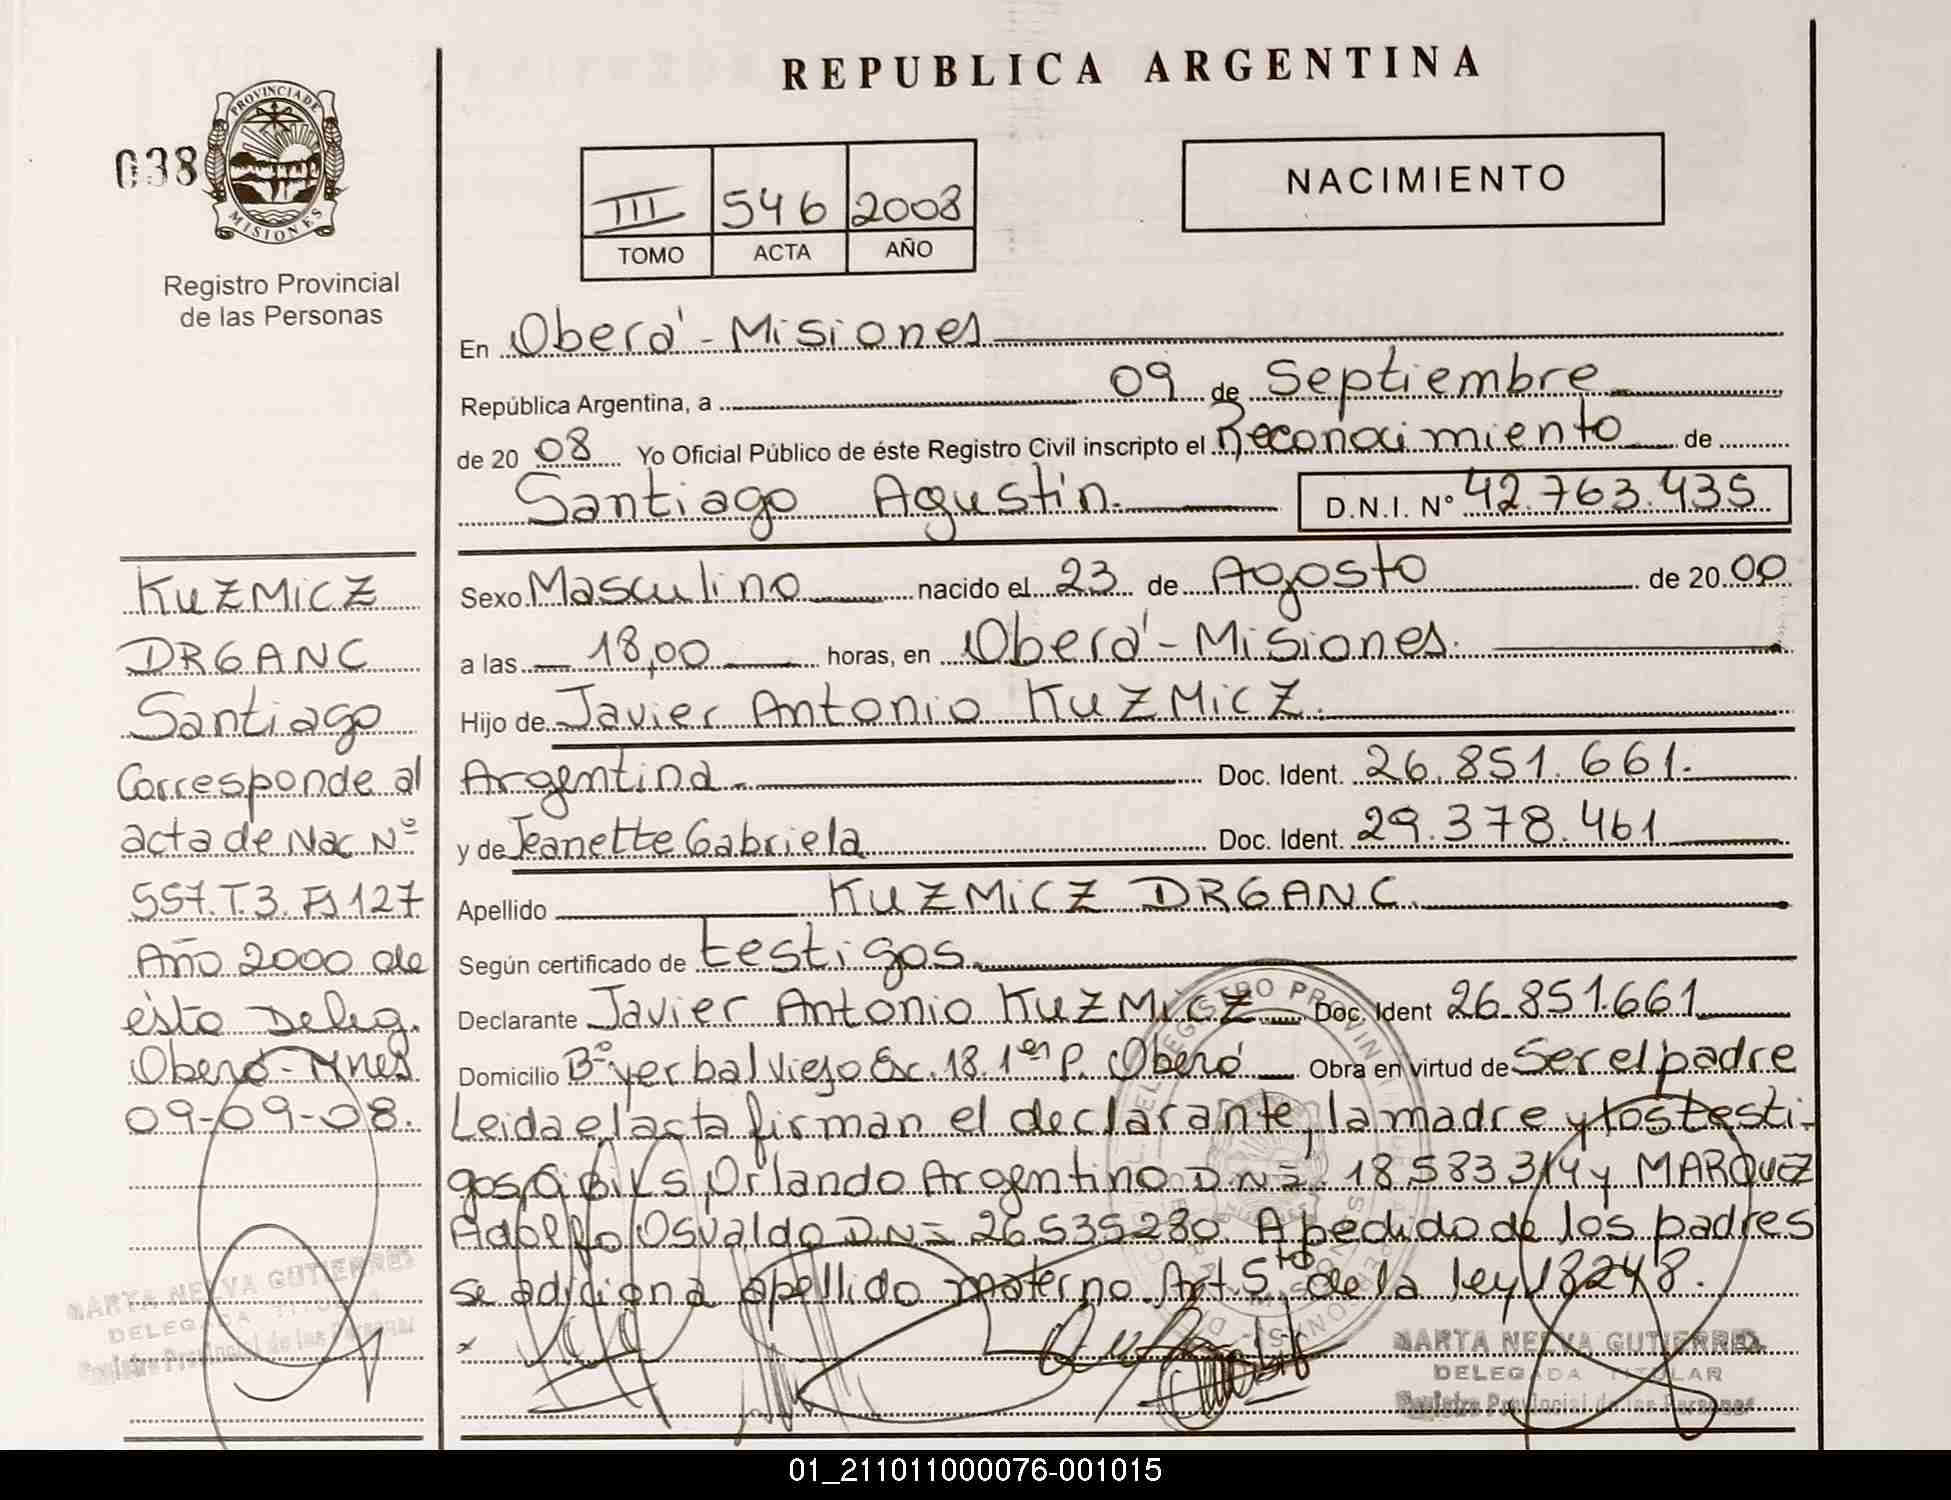 REPUBLICA ARGENTINA
038
PROVINCIA DE
MISIONES
Registro Provincial
de las Personas
III 546 2008
TOMO ACTA AÑO
NACIMIENTO
En Oberá - Misiones
República Argentina, a 09 de Septiembre
de 20 08 Yo Oficial Público de éste Registro Civil inscripto el Reconocimiento de
Santiago Agustín. D.N.I. N° 42.763.435
Sexo Masculino nacido el 23 de Agosto de 20 00
a las 18,00 horas, en Oberá - Misiones.
Hijo de Javier Antonio KUZMICZ.
Argentina. Doc. Ident. 26.851.661.
y de Jeanette Gabriela Doc. Ident. 29.378.461
Apellido KUZMICZ DRGANC.
Según certificado de testigos.
Declarante Javier Antonio KUZMICZ Doc. Ident 26.851.661
Domicilio B° yerbal viejo Esc. 18. 1er P. Oberá Obra en virtud de Ser el padre
Leida el acta firman el declarante, la madre y los testi-
gos, Orlando Argentino DN= 18583314 y MARQUEZ
Adolfo Osvaldo DN= 26535280. A pedido de los padres
se adiciona apellido materno. Art. 5to de la ley 18248.
MARTA NELVA GUTIERREZ
DELEGADA TITULAR
Registro Provincial de las Personas
KUZMICZ
DRGANC
Santiago
Corresponde al
acta de Nac N°
557. T.3. Fs 127
Año 2000 de
ésta Deleg.
Oberá - Mnes
09-09-08.
MARTA NELVA GUTIERREZ
DELEGADA TITULAR
Registro Provincial de las Personas
01_211011000076-001015